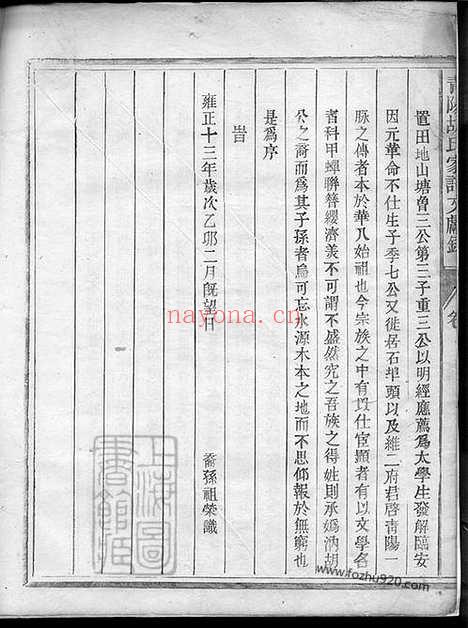 青陽胡氏家譜文獻錄 卷
置田地山塘魯三公第三子重三公以明經應薦為太學生發解臨安
因元革命不仕生子季七公又徙居石埠頭以及維二府君啓青陽一
脉之傳者本於華八始祖也今宗族之中有以仕宦顯者有以文學名
者科甲蟬聯簪纓濟美不可謂不盛然究之吾族之得姓則承媯汭胡
公之裔而為其子孫者烏可忘水源木本之地而不思仰報於無窮也
是為序
旹
雍正十三年歲次乙卯二月旣望日
裔孫祖榮識
上海圖書館藏
nayona.cn
www.fozhu920.com